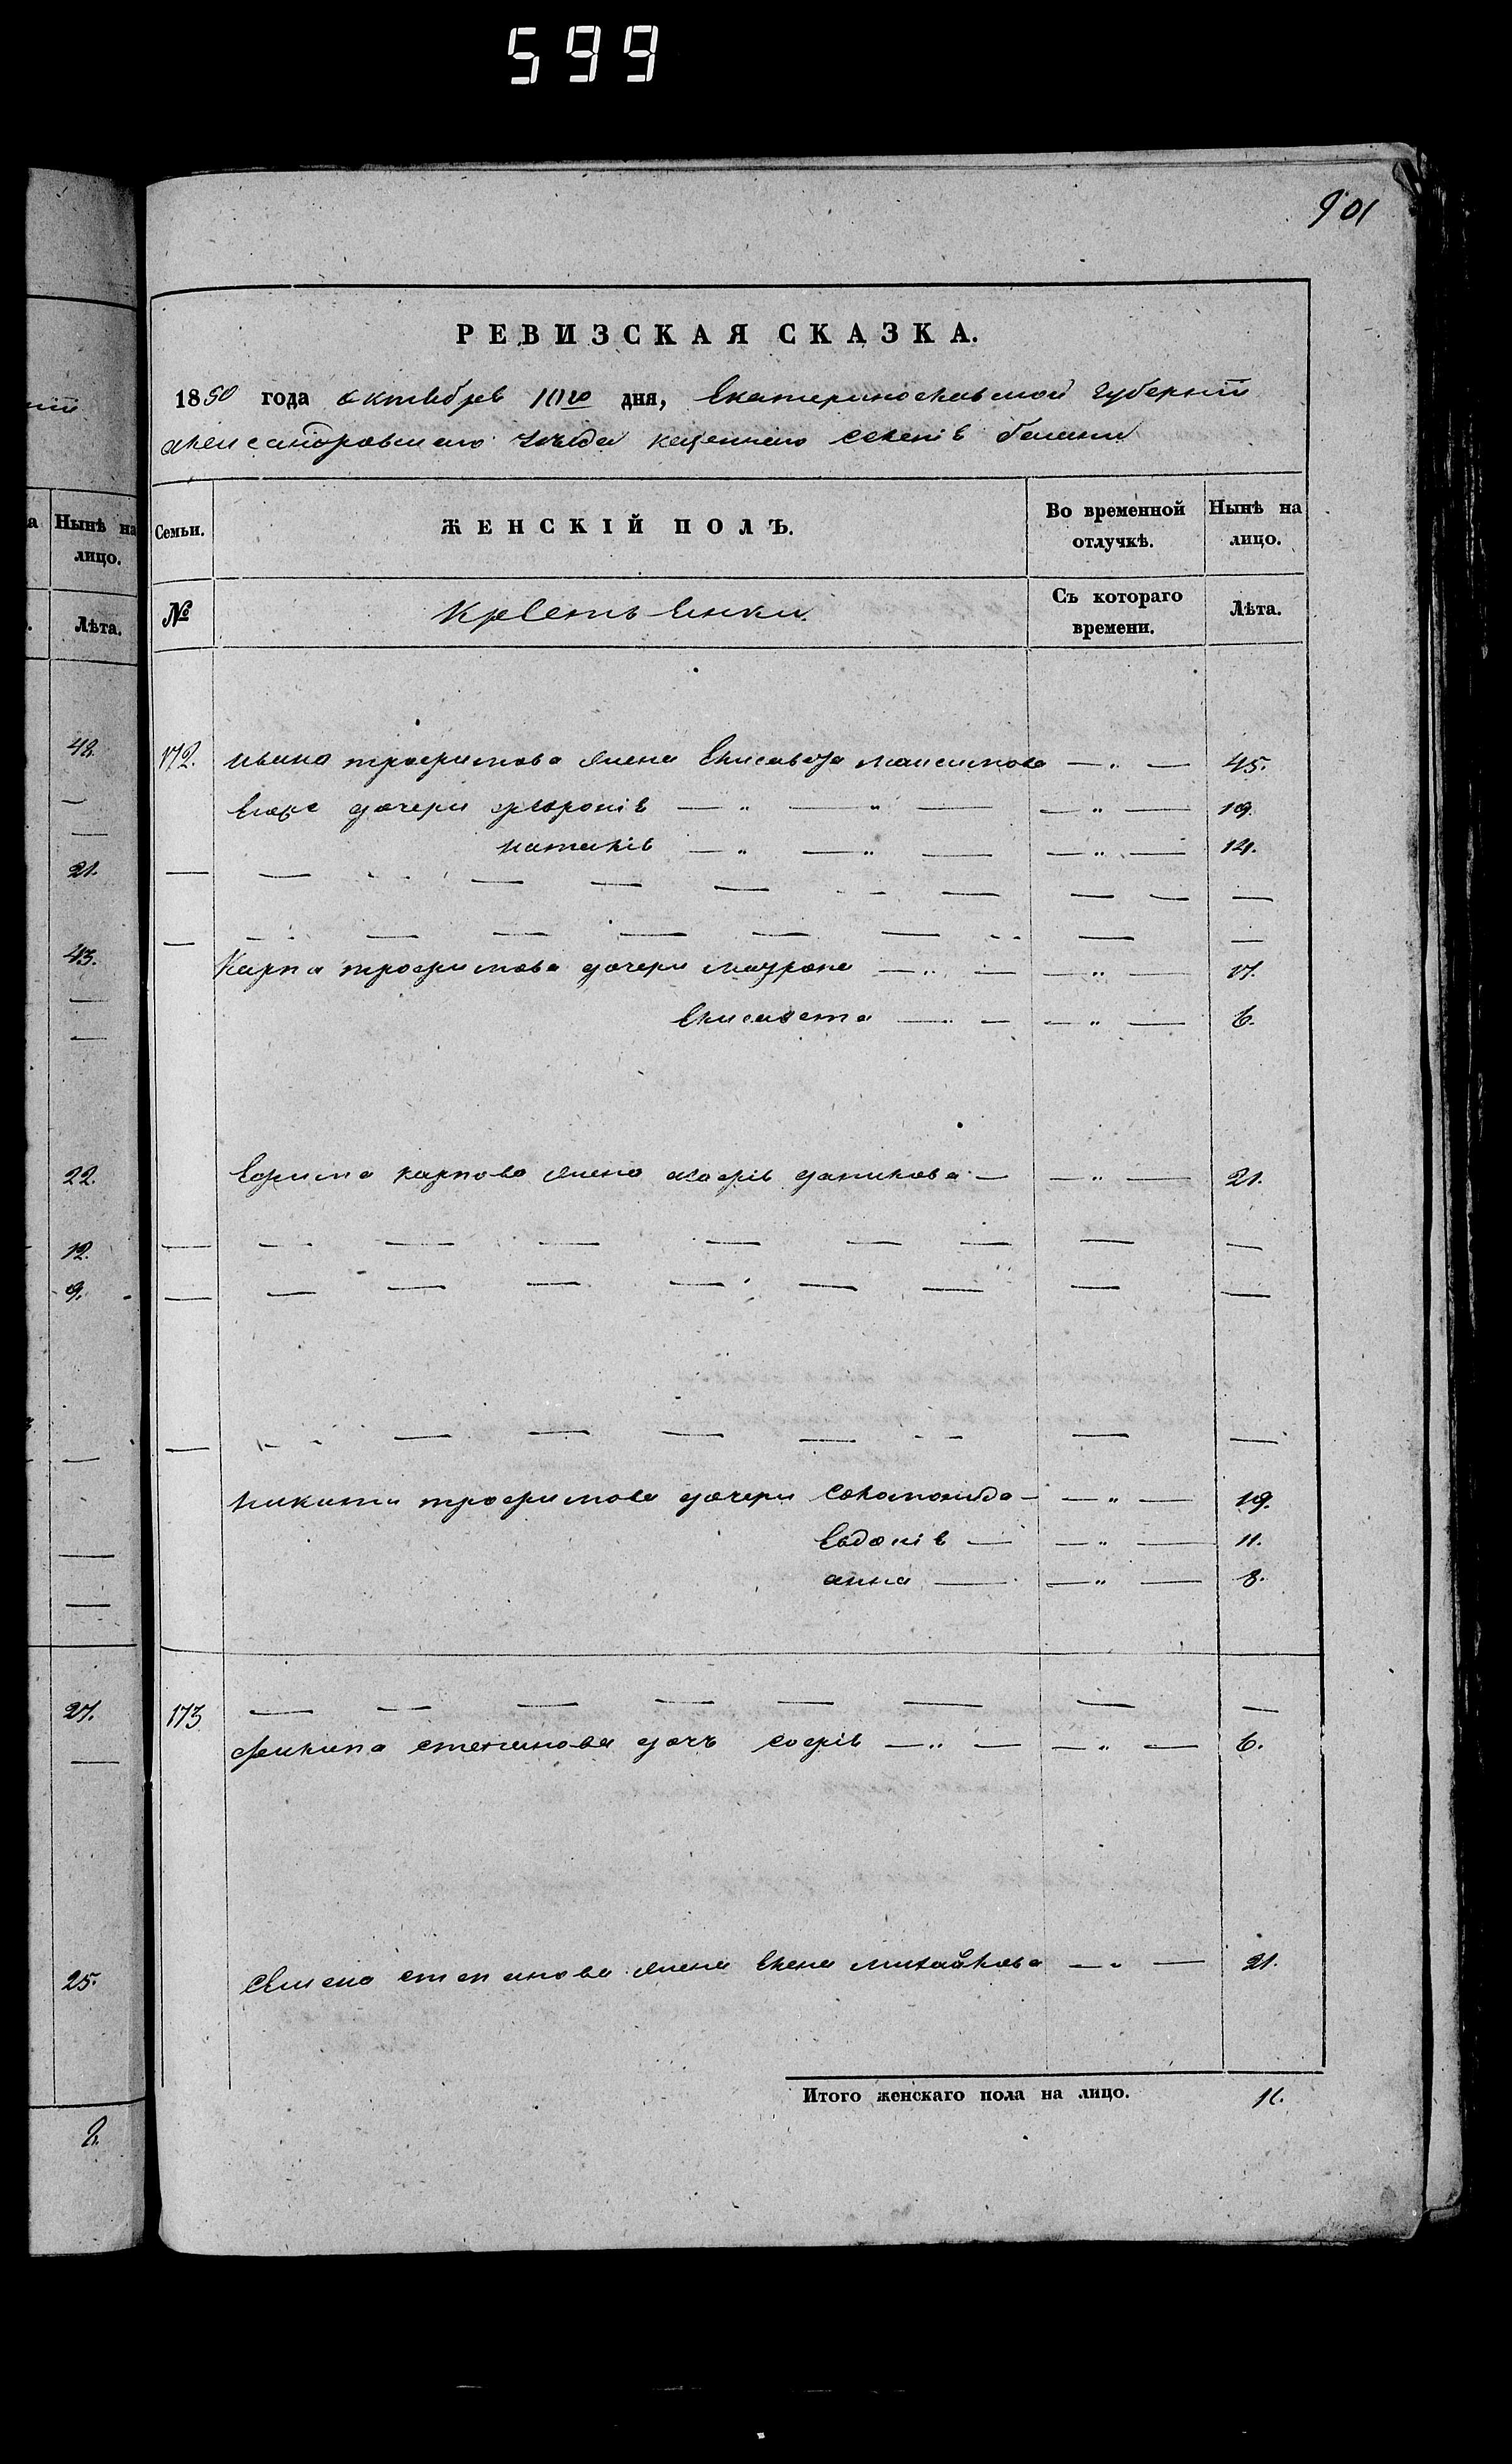 599
901
РЕВИЗСКАЯ СКАЗКА.
1850 года октября 10го дня, Екатеринославской губерніи
александровскаго уѣзда казеннаго селенія
Семьи. ЖЕНСКІЙ ПОЛЪ. Во временной отлучкѣ. Нынѣ на лицо.
№ Крестьянки. Съ котораго времени. Лѣта.
172. Ивана трофимова жена Елисавета максимова — „ — 45.
Его же дочери февронія — „ — „ — — „ — 19.
наталія — „ — „ — — „ — 14.
Карпа трофимова дочери маурона — „ — — „ — 17.
Елисавета — „ — — „ — 6.
Ефима карпова жена софія данилова — — „ — 21.
никиты трофимова дочери соломонида — — „ — 19.
Евдокія — — „ — 11.
анна — — „ — 8.
173
филипа степанова дочь софія — „ — — „ — 6.
Семена степанова жена Елена михайлова — „ — 21.
Итого женскаго пола на лицо. 11.
а Нынѣ на лицо.
Лѣта.
48.
21.
43.
22.
12.
9.
27.
25.